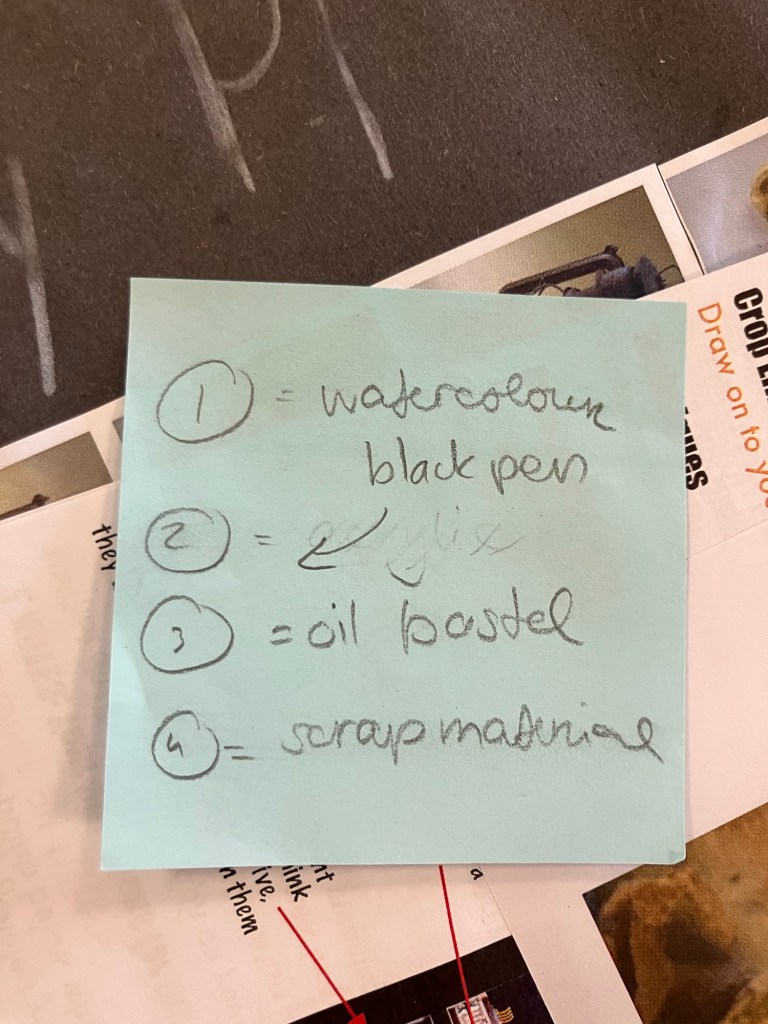 Crop Li
Draw on to yo
ques
they
① = watercolour
black pen
② =
③ = oil pastel
④ = scrap material
nt
ink
ive,
n them
a